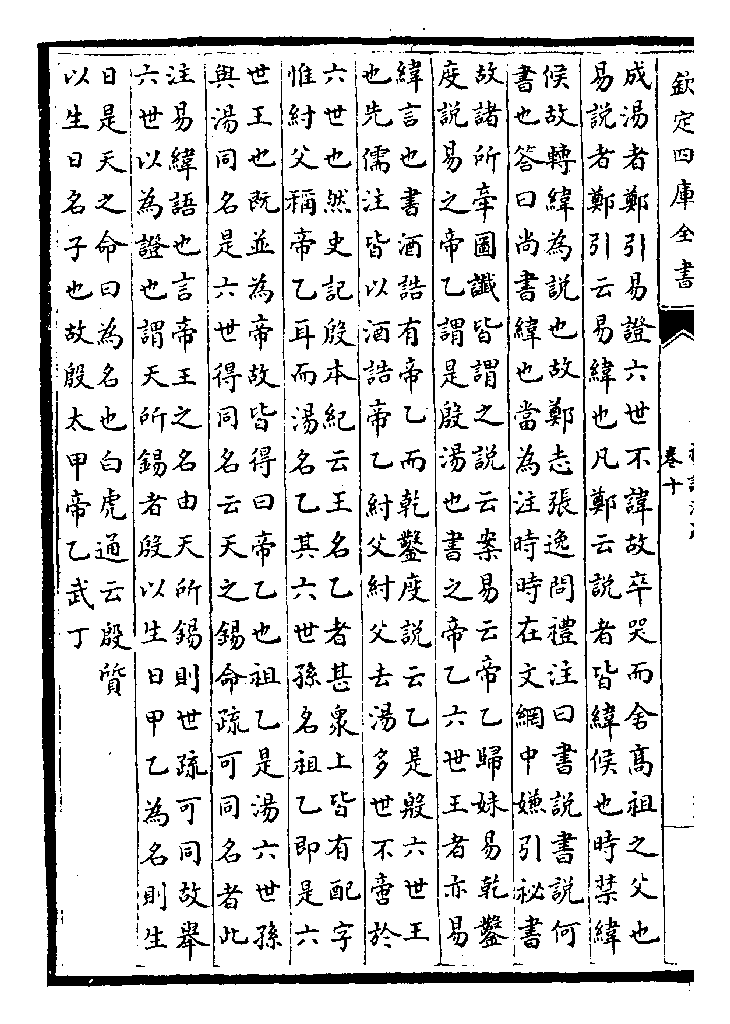 欽定四庫全書
卷十
成湯者鄭引易證六世不諱故卒哭而舍高祖之父也
易說者鄭引云易緯也凡鄭云說者皆緯候也時禁緯
候故轉緯為說也故鄭志張逸問禮注曰書說書說何
書也答曰尚書緯也當為注時時在文網中嫌引祕書
故諸所牽圖讖皆謂之說云案易云帝乙歸妹易乾鑿
度說易之帝乙謂是殷湯也書之帝乙六世王者亦易
緯言也書酒誥有帝乙而乾鑿度說云乙是殷六世王
也先儒注皆以酒誥帝乙紂父紂父去湯多世不啻於
六世也然史記殷本紀云王名乙者甚衆上皆有配字
惟紂父稱帝乙耳而湯名乙其六世孫名祖乙即是六
世王也既並為帝故皆得曰帝乙也祖乙是湯六世孫
與湯同名是六世得同名云天之錫命疏可同名者此
注易緯語也言帝王之名由天所錫則世疏可同故舉
六世以為證也謂天所錫者殷以生日甲乙為名則生
日是天之命曰為名也白虎通云殷質
以生日名子也故殷太甲帝乙武丁